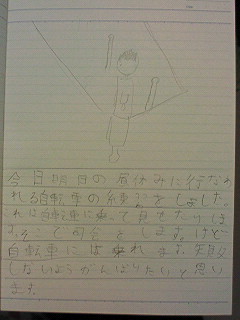 今日明日の昼休みに行なわ
れる自転車の練習をしました。
れは自転車に乗って
で司会をします。けど
自転車には乗れ
しないようがんばりたいと思い
ます。